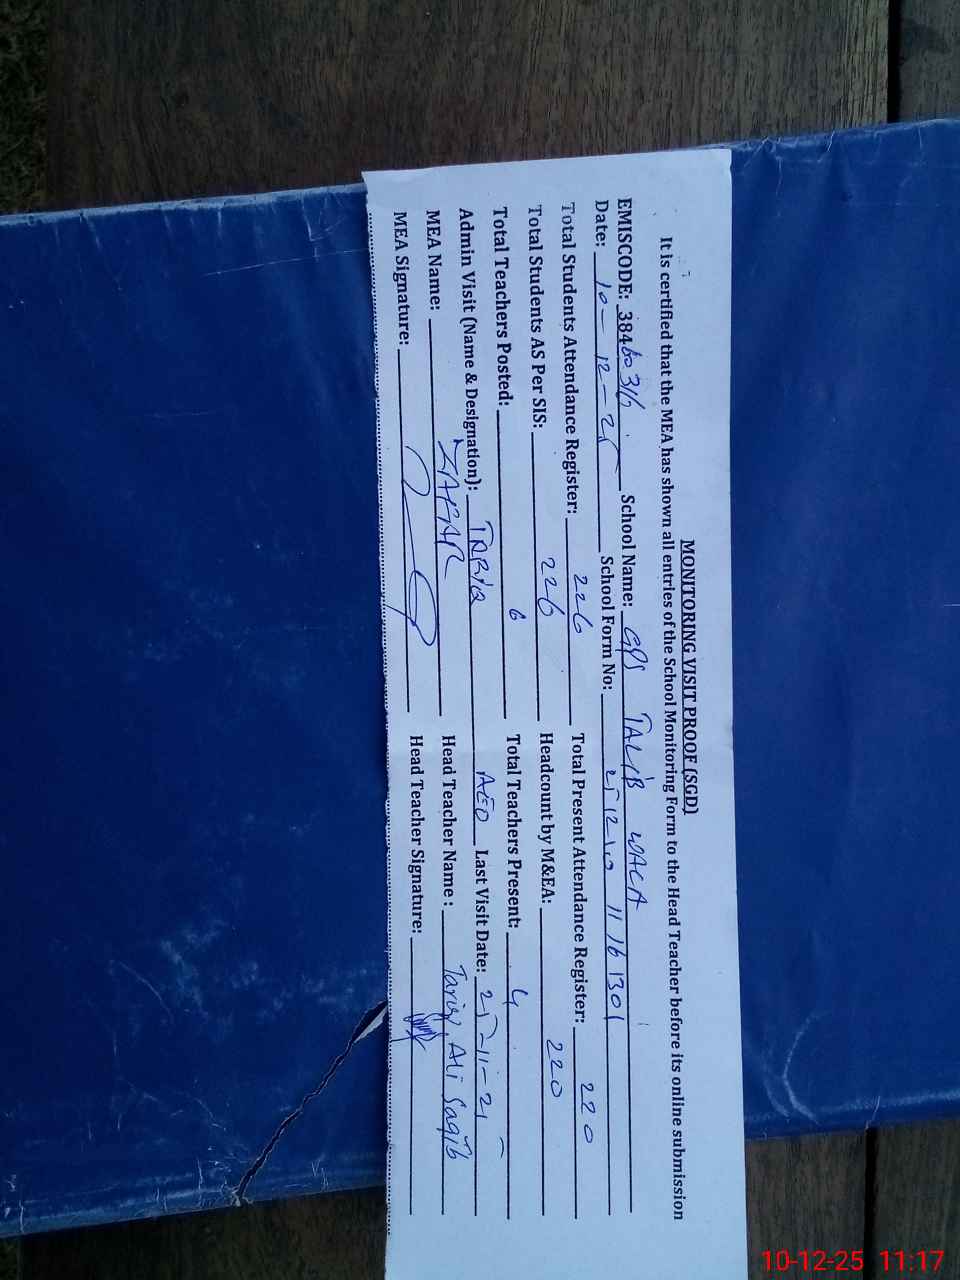 MONITORING VISIT PROOF (SGD)
It is certified that the MEA has shown all entries of the School Monitoring Form to the Head Teacher before its online submission
EMISCODE: 38460316 School Name: GPS TALIB WALA
Date: 10-12-25 School Form No: 251210 11161301
Total Students Attendance Register: 226 Total Present Attendance Register: 220
Total Students AS Per SIS: 226 Headcount by M&EA: 220
Total Teachers Posted: 6 Total Teachers Present: 4
Admin Visit (Name & Designation): TARIQ AEO Last Visit Date: 25-11-25
MEA Name: ZAFAR Head Teacher Name: Tariq Ali Saqib
MEA Signature: Head Teacher Signature:
10-12-25 11:17